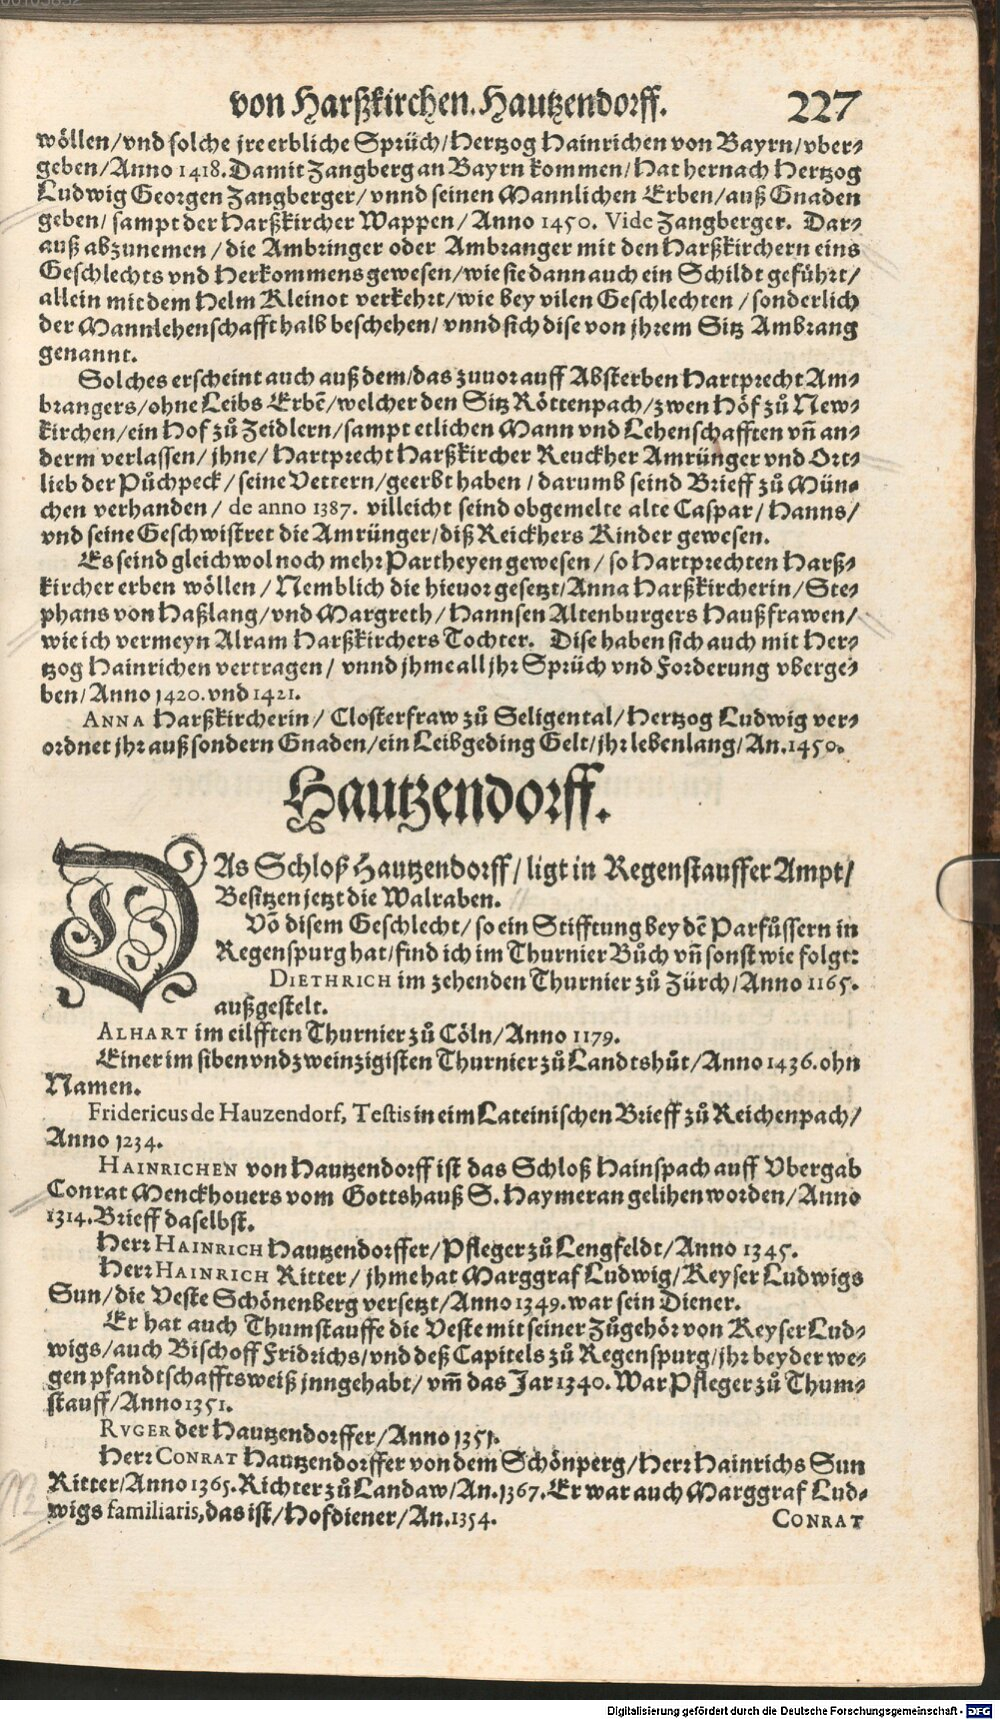 von Harßkirchen. Hautzendorff. 227
wöllen/vnd solche jre erbliche Sprüch/Hertzog Hainrichen von Bayrn/vber-
geben/Anno 1418. Damit Zangberg an Bayrn kommen/Hat hernach Hertzog
Ludwig Georgen Zangberger/vnnd seinen Mannlichen Erben/auß Gnaden
geben/sampt der Harßkircher Wappen/Anno 1450. Vide Zangberger. Dar-
auß abzunemen/die Ambringer oder Ambranger mit den Harßkirchern eins
Geschlechts vnd Herkommens gewesen/wie sie dann auch ein Schildt geführt/
allein mit dem Helm Kleinot verkehrt/wie bey vilen Geschlechten/sonderlich
der Mannlehenschafft halb beschehen/vnnd sich dise von jhrem Sitz Ambrang
genannt.
Solches erscheint auch auß dem/das zuuor auff Absterben Hartprecht Am-
brangers/ohne Leibs Erbẽ/welcher den Sitz Röttenpach/zwen Höf zů New-
kirchen/ein Hof zů Zeidlern/sampt etlichen Mann vnd Lehenschafften vñ an-
derm verlassen/jhne/Hartprecht Harßkircher Reuckher Amrünger vnd Ort-
lieb der Půchpeck/seine Vettern/geerbt haben/darumb seind Brieff zů Mün-
chen verhanden/de anno 1387. villeicht seind obgemelte alte Caspar/Hanns/
vnd seine Geschwistret die Amrünger/diß Reickhers Kinder gewesen.
Es seind gleichwol noch mehr Partheyen gewesen/so Hartprechten Harß-
kircher erben wöllen/Nemblich die hieuor gesetzt/Anna Harßkircherin/Ste-
phans von Haßlang/vnd Margreth/Hannsen Altenburgers Haußfrawen/
wie ich vermeyn Alram Harßkirchers Tochter. Dise haben sich auch mit Her-
tzog Hainrichen vertragen/vnnd jhme all jhr Sprüch vnd Forderung vberge-
ben/Anno 1420. vnd 1421.
ANNA Harßkircherin/Closterfraw zů Seligental/Hertzog Ludwig ver-
ordnet jhr auß sondern Gnaden/ein Leibgeding Gelt/jhr lebenlang/An. 1450.
Hautzendorff.
DAs Schloß Hautzendorff/ligt in Regenstauffer Ampt/
Besitzen jetzt die Walraben.
Võ disem Geschlecht/so ein Stifftung bey dẽ Parfůssern in
Regenspurg hat/find ich im Thurnier Bůch vñ sonst wie folgt:
DIETHRICH im zehenden Thurnier zů Zürch/Anno 1165.
außgestelt.
ALHART im eilfften Thurnier zů Cöln/Anno 1179.
Einer im siben vnd zweinzigisten Thurnier zů Landtshůt/Anno 1436. ohn
Namen.
Fridericus de Hauzendorf, Testis in eim Lateinischen Brieff zů Reichenpach/
Anno 1234.
HAINRICHEN von Hautzendorff ist das Schloß Hainspach auff Vbergab
Conrat Menckhouers vom Gottshauß S. Haymeran gelihen worden/Anno
1314. Brieff daselbst.
Herr HAINRICH Hautzendorffer/Pfleger zů Lengfeldt/Anno 1345.
Herr HAINRICH Ritter/jhme hat Marggraf Ludwig/Keyser Ludwigs
Sun/die Veste Schönenberg versetzt/Anno 1349. war sein Diener.
Er hat auch Thumstauffe die Veste mit seiner Zůgehör von Keyser Lud-
wigs/auch Bischoff Fridrichs/vnd deß Capitels zů Regenspurg/jhr beyder we-
gen pfandtschafftsweiß jnngehabt/vm̃ das Jar 1340. War Pfleger zů Thum-
stauff/Anno 1351.
RVGER der Hautzendorffer/Anno 1351.
Herr CONRAT Hautzendorffer von dem Schönperg/Herr Hainrichs Sun
Ritter/Anno 1365. Richter zů Landaw/An. 1367. Er war auch Marggraf Lud-
wigs familiaris, das ist/Hofdiener/An. 1354.
CONRAT
Digitalisierung gefördert durch die Deutsche Forschungsgemeinschaft - DFG